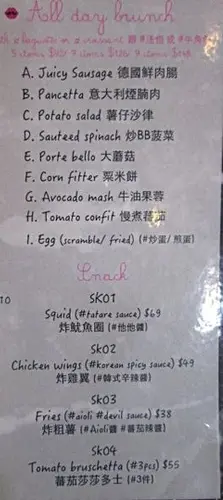 All day brunch
A. Juicy Sausage 德國鮮肉腸
B. Pancetta 意大利煙腩肉
C. Potato salad 薯仔沙律
D. Sauteed spinach 炒BB菠菜
E. Porte bello 大蘑菇
F. Corn fitter 粟米餅
G. Avocado mash 牛油果蓉
H. Tomato confit 慢煮蕃茄
I. Egg (scramble/ fried) (#炒蛋/ 煎蛋)
Snack
SK01
Squid (#tatare sauce) $69
炸魷魚圈 (#他他醬)
SK02
Chicken wings (#korean spicy sauce) $49
炸雞翼 (#韓式辛辣醬)
SK03
Fries (#aioli #devil sauce) $38
炸粗薯 (#Aioli醬 #蕃茄辣醬)
SK04
Tomato bruschetta (#3pcs) $55
蕃茄莎莎多士 (#3件)